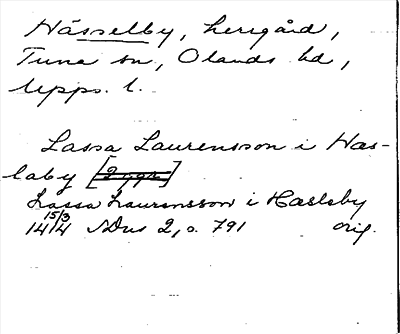 Hässelby, herrgård,
Tuna sn, Olands hd,
Upps. l.
Lassa Laurensson i Has-
laby
Lassa Laurensson i Haslsby
15/3
1414 SDns 2, s. 791 orig.